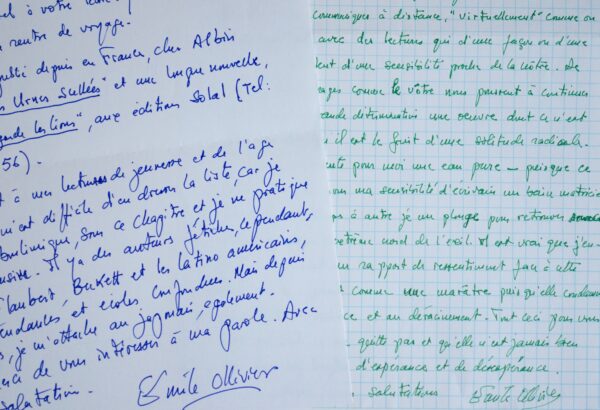 à votre
rentre de voyage.
publié depuis en France, chez Albin
Urnes Scellées" et une longue nouvelle,
Regarde les lions", aux éditions Solal (Tel:
56).
à mes lectures de jeunesse et de l'âge
m'est difficile d'en donner la liste, car je
boulimique, sous ce chapitre et je ne pratique
Il y a des auteurs fétiches, cependant,
Flaubert, Beckett et les latino américains,
tendances et écoles confondues. Mais depuis
, je m'attache au japonais, également.
merci de vous intéresser à ma parole. Avec
salutations.
Emile Ollivier
communiquer à distance, "virtuellement" comme on
avec des lecteurs qui d'une façon ou d'une
d'une sensibilité proche de la nôtre. De
comme le vôtre nous poussent à continuer
grande détermination une oeuvre dont ce n'est
il est le fruit d'une solitude radicale.
pour moi une eau pure — puisque ce
ma sensibilité d'écrivain un bain matriciel
à autre je me plonge pour retrouver
extrême nord de l'exil. Il est vrai que j'en-
un rapport de ressentiment face à cette
comme une marâtre puisqu'elle condamne
et au déracinement. Tout ceci pour vous
quitte pas et qu'elle n'est jamais bien
d'espérance et de désespérance.
salutations Emile Ollivier